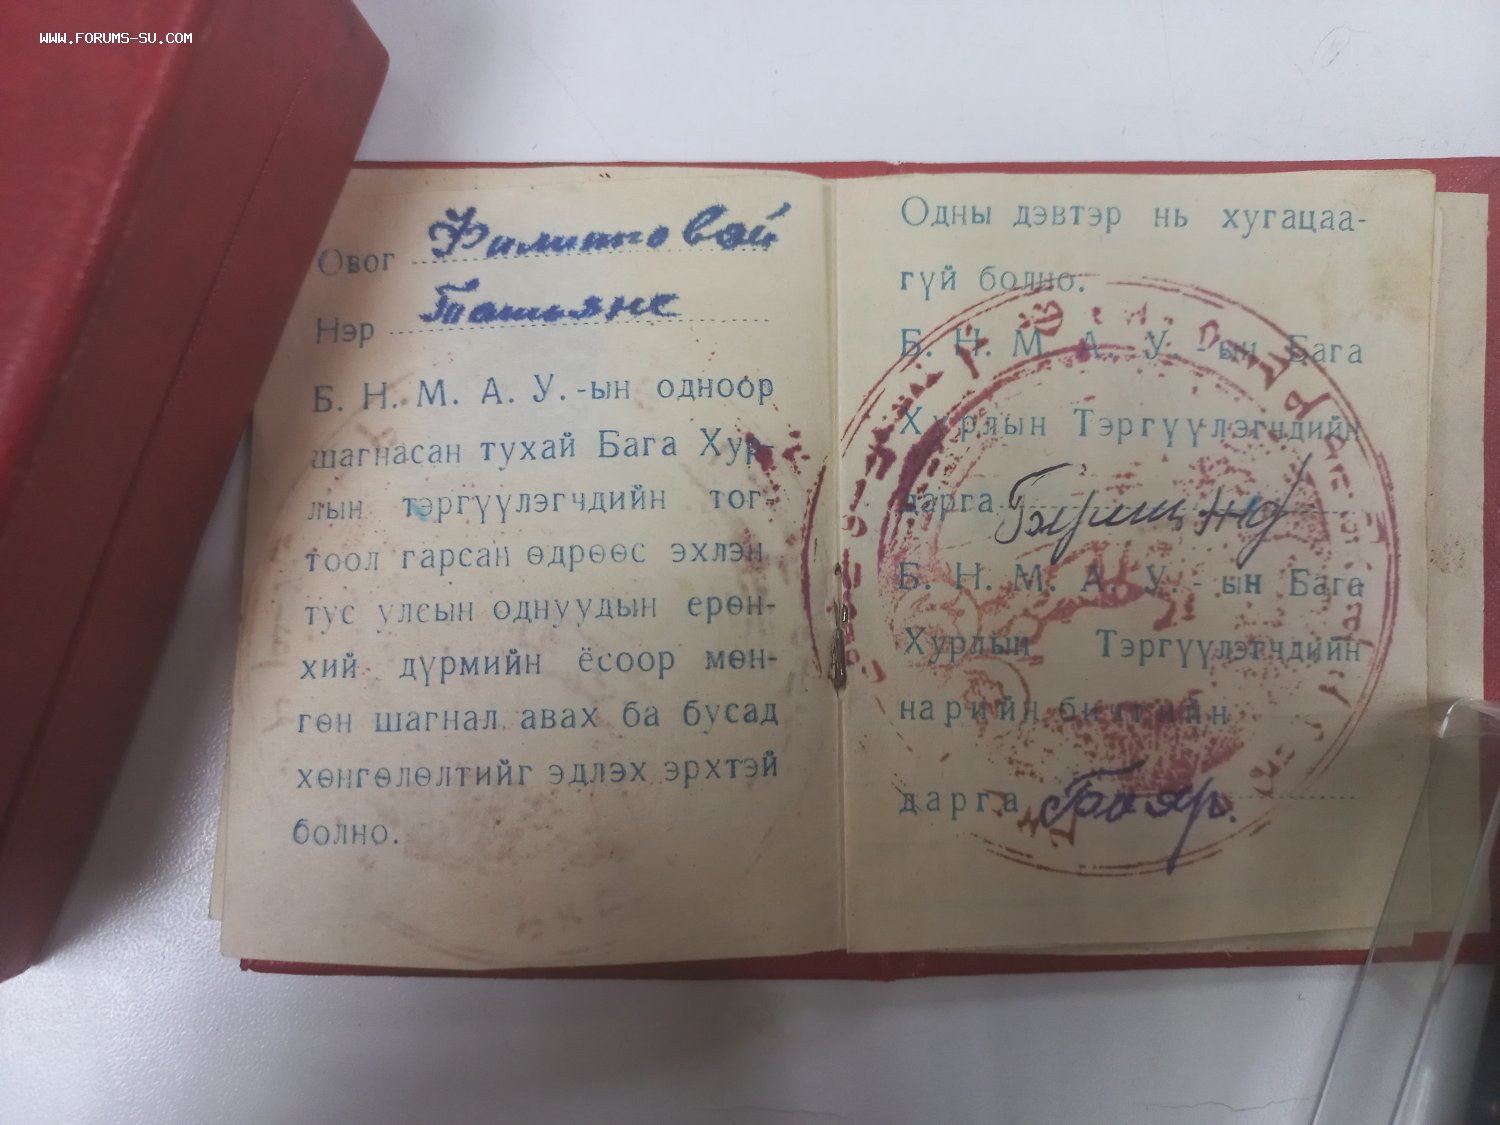 WWW.FORUMS-SU.COM
Овог Филипповой
Нэр Татьяне
Б. Н. М. А. У.-ын одноор
шагнасан тухай Бага Хур-
лын тэргүүлэгчдийн тог-
тоол гарсан өдрөөс эхлэн
тус улсын однуудын ерөн-
хий дүрмийн ёсоор мөн-
гөн шагнал авах ба бусад
хөнгөлөлтийг эдлэх эрхтэй
болно.
Одны дэвтэр нь хугацаа-
гүй болно.
Б. Н. М. А. У. - ын Бага
Хурлын Тэргүүлэгчдийн
дарга
Б. Н. М. А. У. - ын Бага
Хурлын Тэргүүлэгчдийн
нарийн бичгийн
дарга